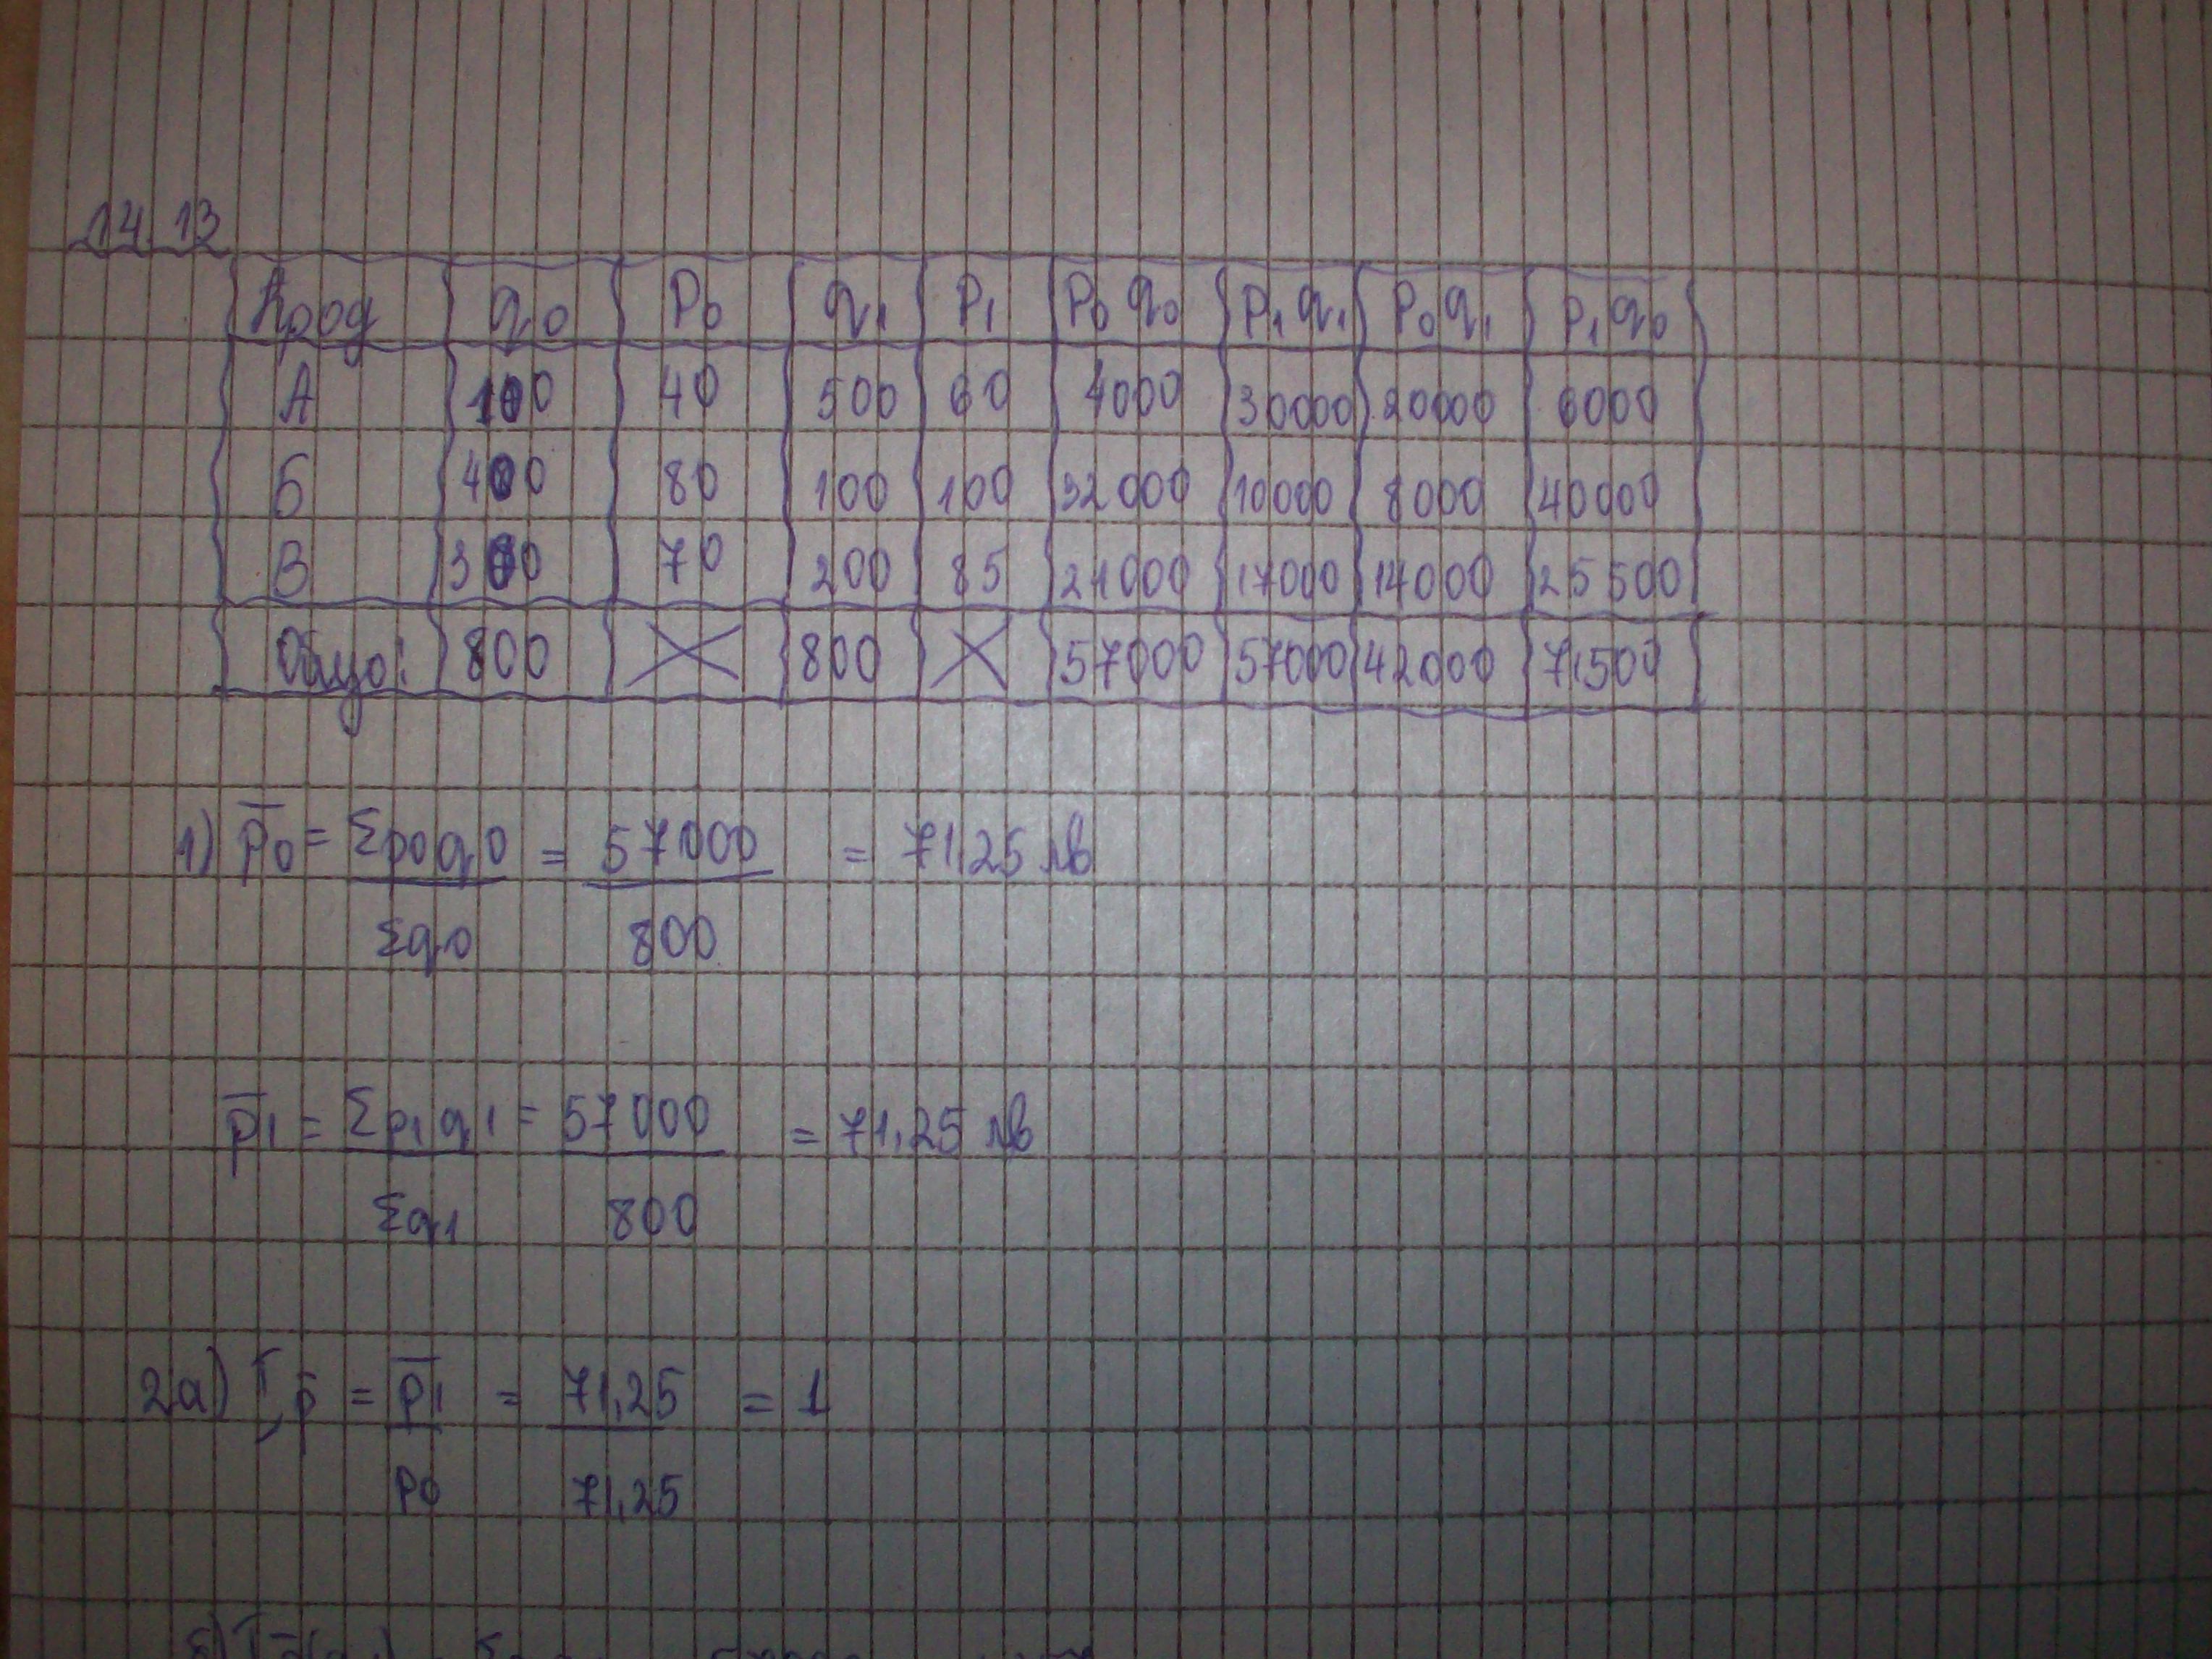 14.13
Прод q0 P0 q1 P1 P0 q0 P1 q1 P0 q1 P1 q0
А 100 40 500 60 4000 30000 20000 6000
Б 400 80 100 100 32000 10000 8000 40000
В 300 70 200 85 21000 17000 14000 25500
Общо: 800 800 57000 57000 42000 71500
1) p̄0 = Σp0q0 = 57000 = 71,25 лв
Σq0 800
p̄1 = Σp1q1 = 57000 = 71,25 лв
Σq1 800
2а) I p̄ = p̄1 = 71,25 = 1
p0 71,25